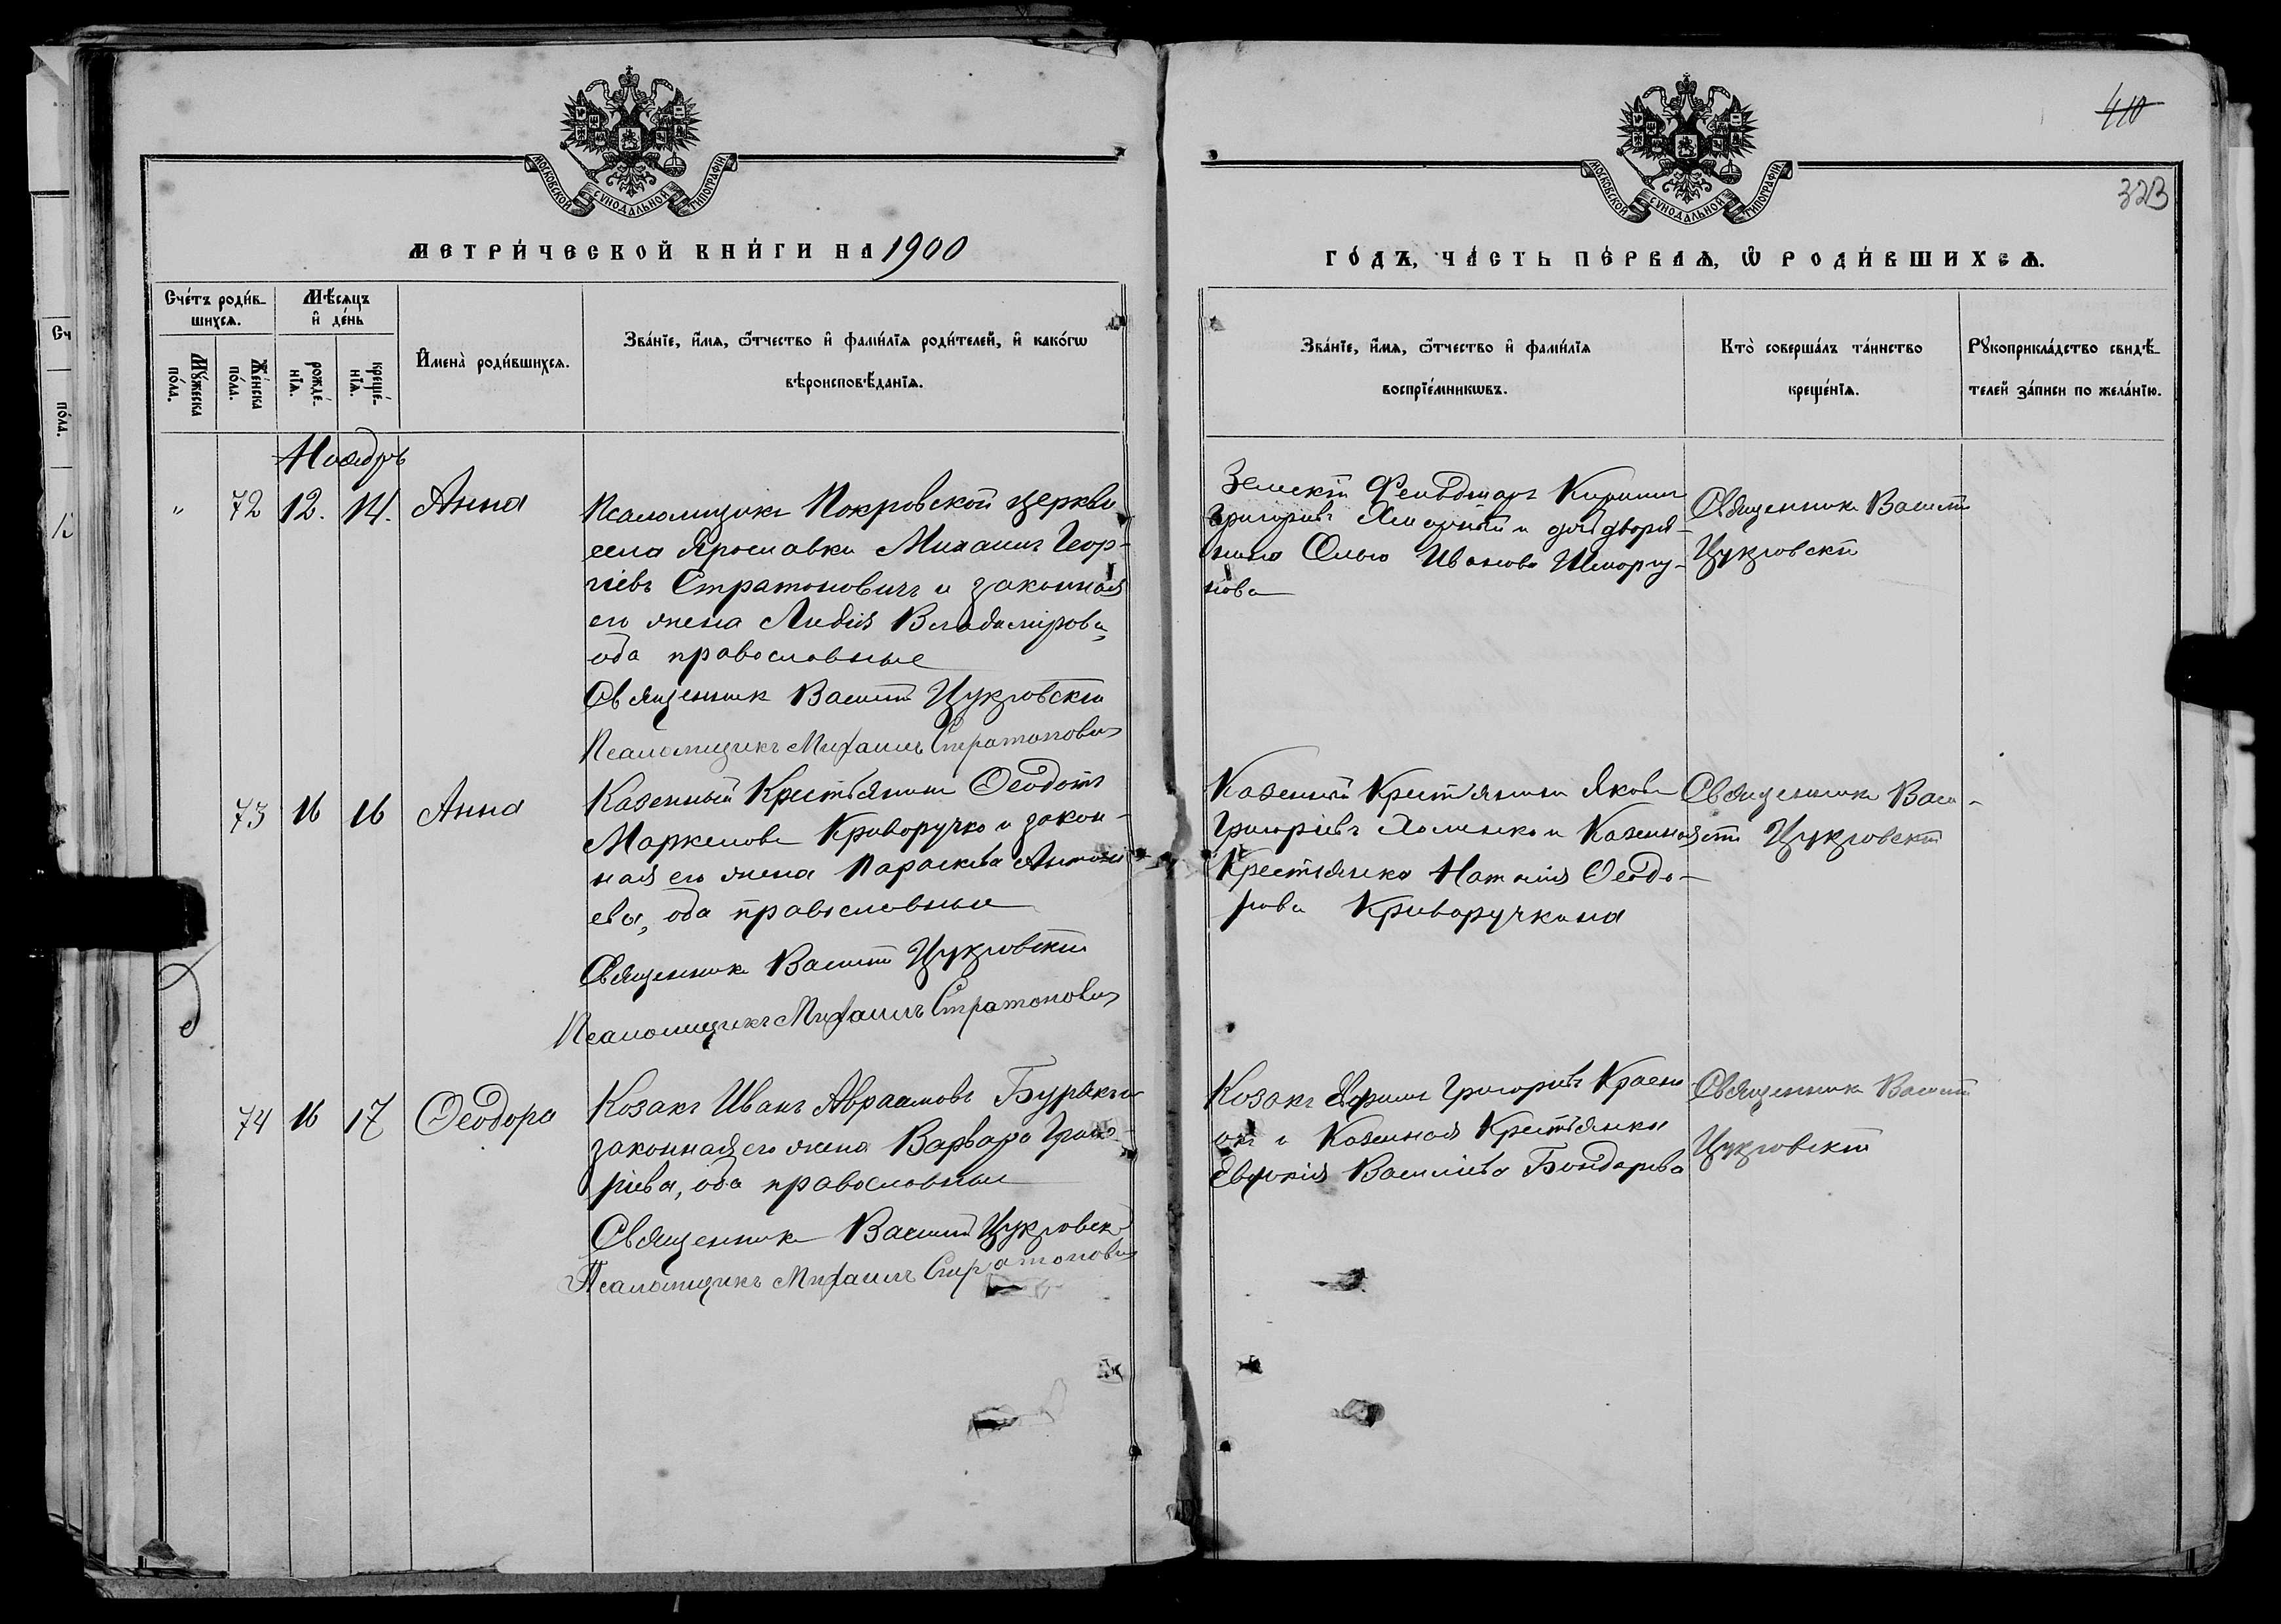 410
323
МОСКОВСКОЙ СѴНОДАЛЬНОЙ ТИПОГРАФІИ
МОСКОВСКОЙ СѴНОДАЛЬНОЙ ТИПОГРАФІИ
МЕТРИ́ЧЕСКОЙ КНИ́ГИ НА 1900
ГО́ДЪ, ЧА́СТЬ ПЕ́РВАѦ, Ѡ РОДИ́ВШИХСѦ.
Сче́тъ роди́в-
шихсѧ.
Мꙋ́жеска
по́ла.
Же́нска
по́ла.
Мѣ́сѧцъ
и҆ де́нь
рожде́-
нїѧ.
креще́-
нїѧ.
И҆мена̀ роди́вшихсѧ.
Зва́нїе, и҆́мѧ, ѻ҆́тчество и҆ фами́лїѧ роди́телей, и҆ како́гѡ
вѣроисповѣ́данїѧ.
Зва́нїе, и҆́мѧ, ѻ҆́тчество и҆ фами́лїѧ
воспрїе́мникѡвъ.
Кто̀ соверша́лъ та́инство
креще́нїѧ.
Рꙋкоприкла́дство свидѣ́-
телей за́писи по жела́нїю.
Ноябрь
" 72 12. 14. Анна
Псаломщикъ Покровской церкви
села Ярославки Михаилъ Геор-
гіевъ Стратоновичъ и законная
его жена Лидія Владимірова,
оба православные
Священникъ Василій Цукровскій
Псаломщикъ Михаилъ Стратоновичъ
Земскій Фельдшеръ Кириллъ
Григорьевъ и дочь дворя-
нина Ольга Иванова
нова
Священникъ Василій
Цукровскій
73 16 16 Анна
Казенный Крестьянинъ Ѳеодотъ
Маркеловъ Криворучко и закон-
ная его жена Параскева Антонi-
ева, оба православные
Священникъ Василій Цукровскій
Псаломщикъ Михаилъ Стратоновичъ
Казенный Крестьянинъ Яковъ
Григорьевъ Хоменко и Казенная
Крестьянка Наталія Ѳеодо-
рова Криворучкина
Священникъ Васи-
лій Цукровскій
74 16 17 Ѳеодора
Козакъ Иванъ Авраамовъ Бурякъ и
законная его жена Варвара Григо-
рьева, оба православные
Священникъ Василій Цукровскій
Псаломщикъ Михаилъ Стратоновичъ
Козакъ Ефимъ Григорьевъ
и Казенная Крестьянка
Евфимія Васильева Бондарева
Священникъ Василій
Цукровскій